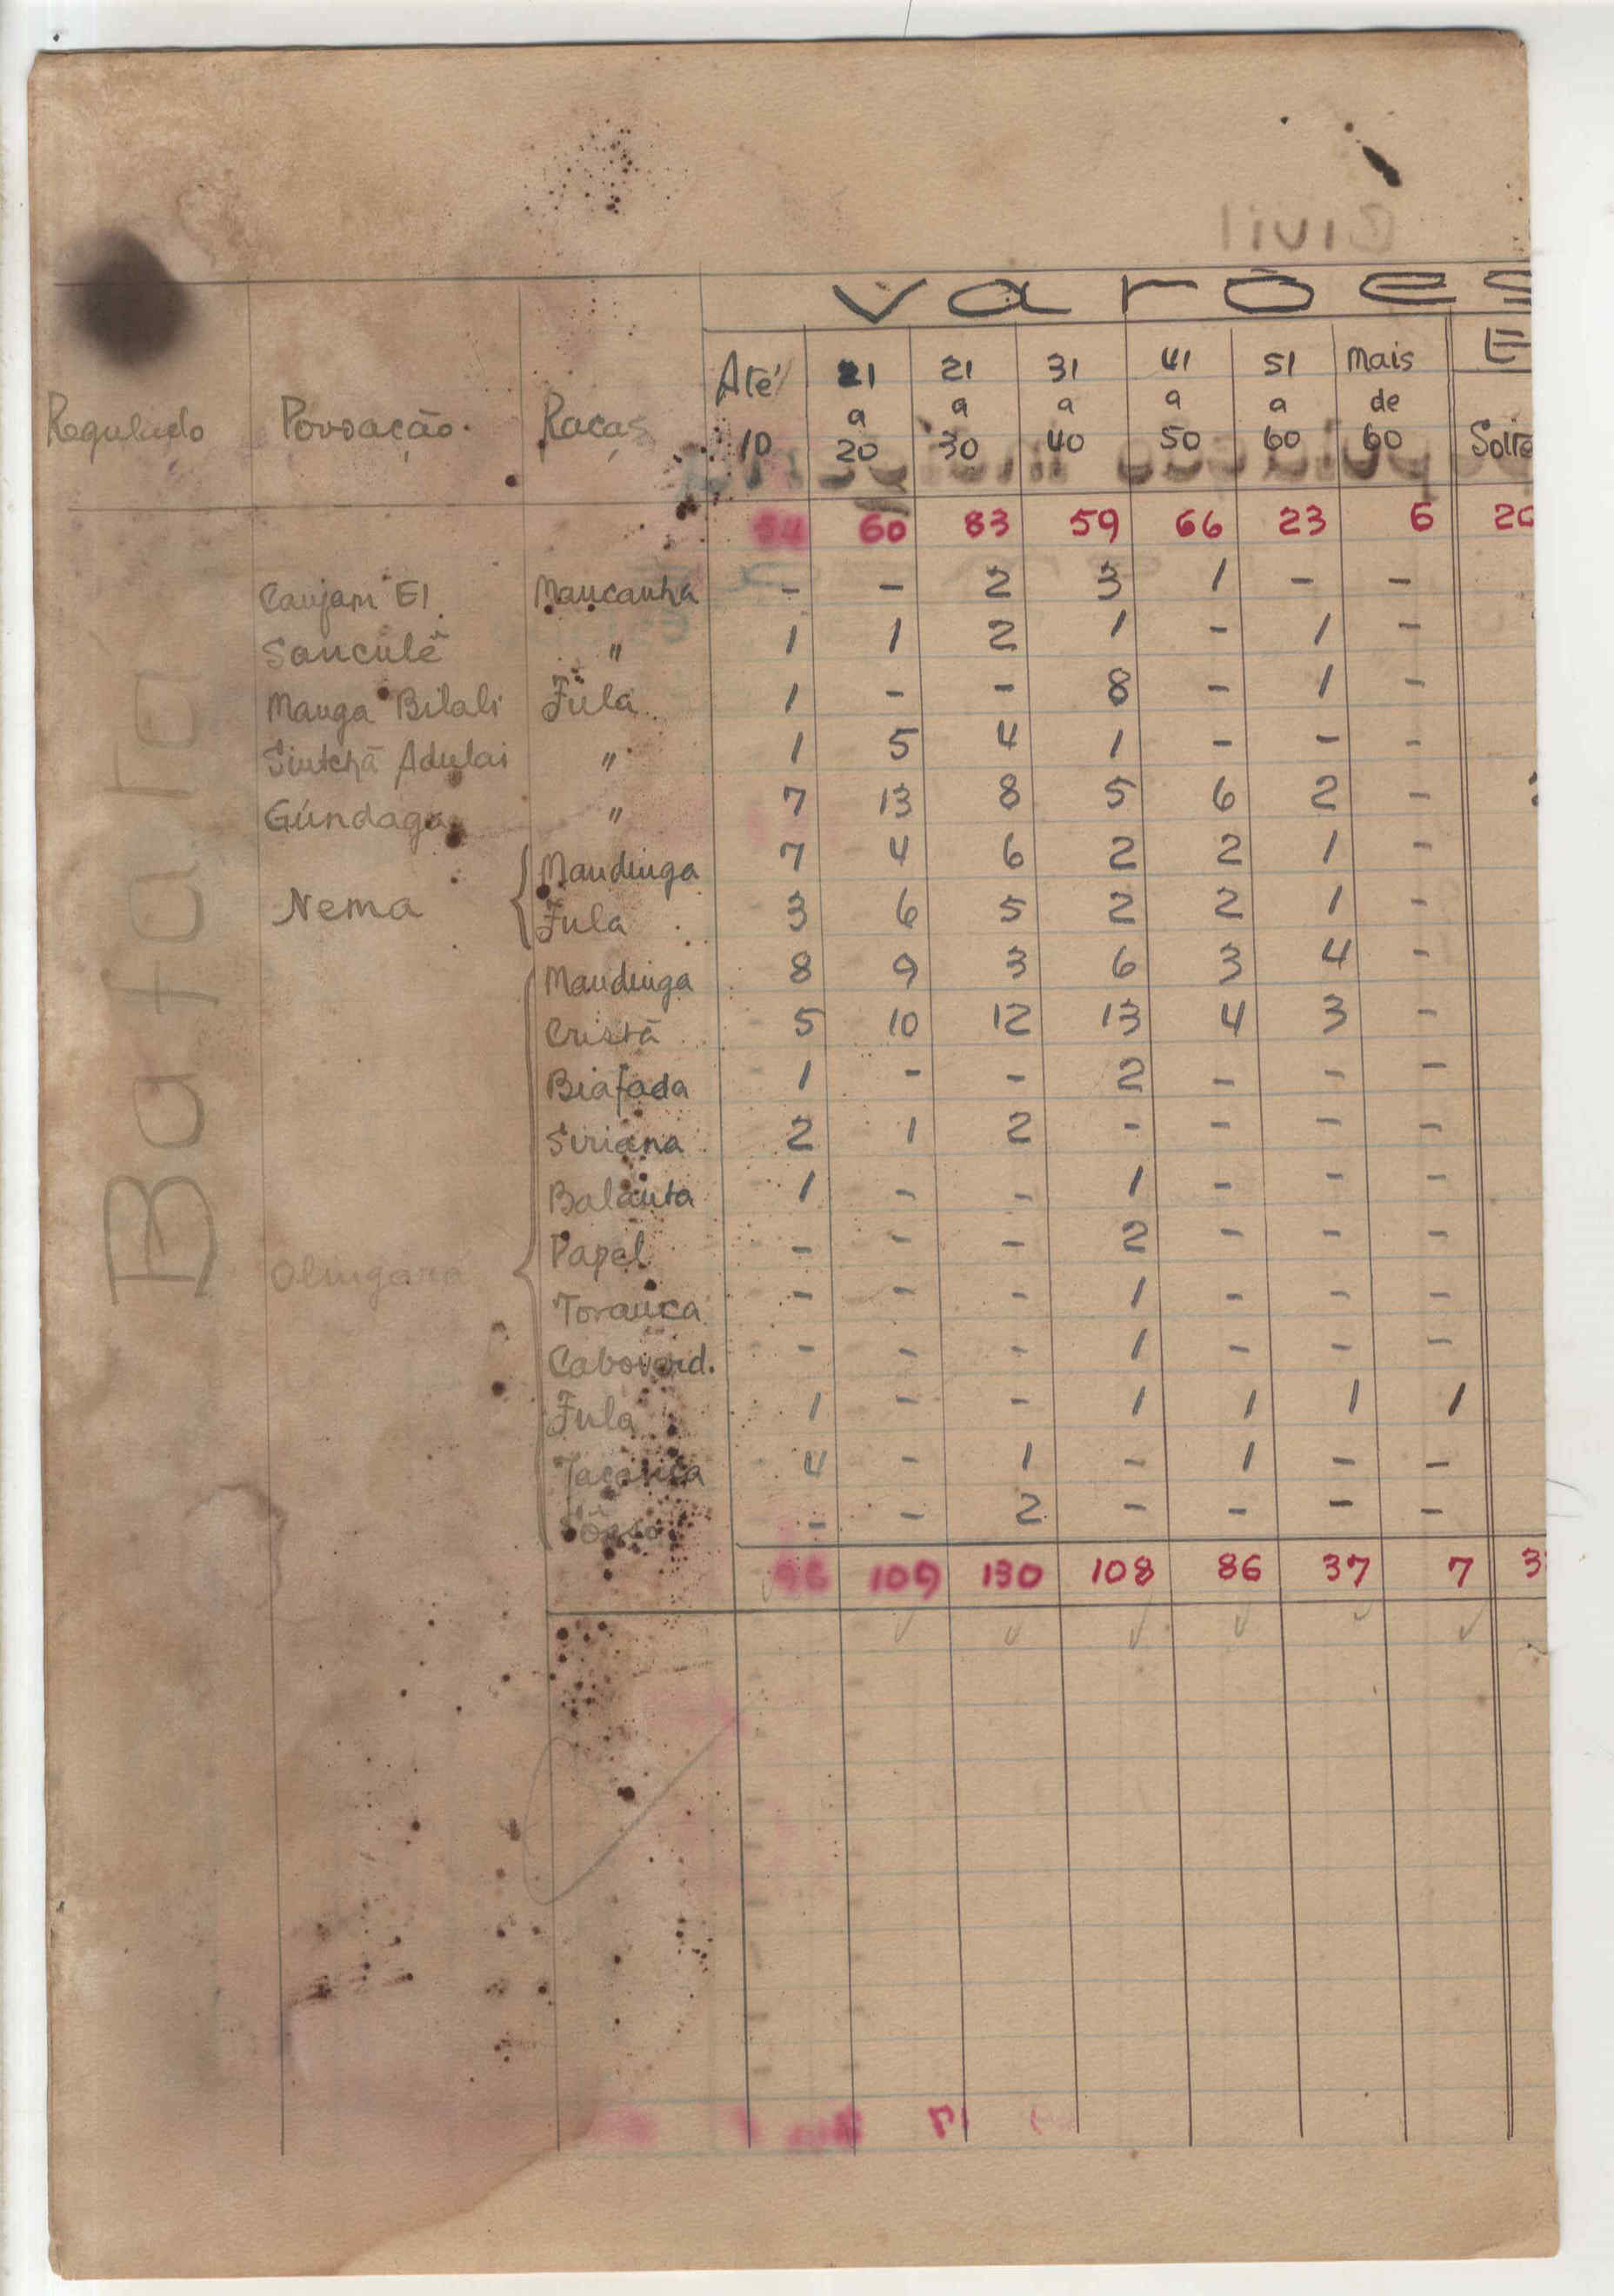 Varões
Regulado Povoação Raças Até 10 21 a 20 21 a 30 31 a 40 41 a 50 51 a 60 Mais de 60
60 83 59 66 23 6
Canjam El Mancanha - - 2 3 1 - -
Sanculê " 1 1 2 1 - 1 -
Manga Bilali Fula 1 - - 8 - 1 -
Sintchã Adulai " 1 5 4 1 - - -
Gúndaga " 7 13 8 5 6 2 -
Mandinga 7 4 6 2 2 1 -
Nema
Fula 3 6 5 2 2 1 -
Mandinga 8 9 3 6 3 4 -
Cristã 5 10 12 13 4 3 -
Biafada 1 - - 2 - - -
Siriana 2 1 2 - - - -
Balanta 1 - - 1 - - -
Papel - - - 2 - - -
Toranca - - - 1 - - -
Caboverd. - - - 1 - - -
Fula 1 - - 1 1 1 1
4 - 1 - 1 - -
- - 2 - - - -
109 130 108 86 37 7
Bafatá